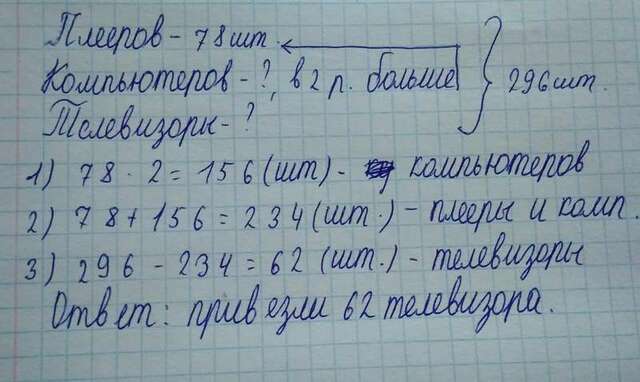 Плееров - 78 шт.
Компьютеров - ?, в 2 р. больше } 296 шт.
Телевизоры - ?
1) 78 · 2 = 156 (шт) - компьютеров
2) 78 + 156 = 234 (шт.) - плееры и комп.
3) 296 - 234 = 62 (шт.) - телевизоры
Ответ: привезли 62 телевизора.